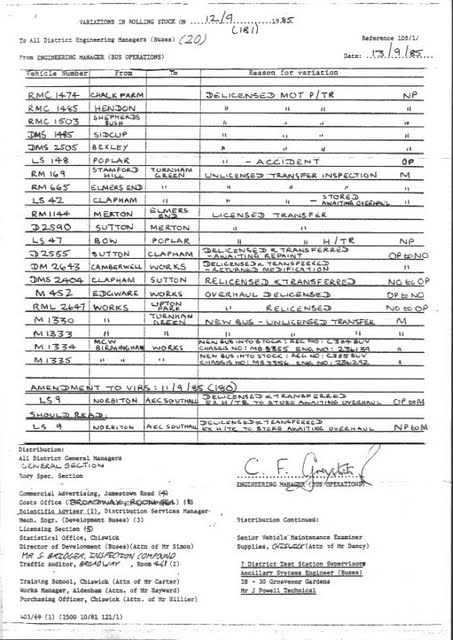 VARIATIONS IN ROLLING STOCK ON 12/9 1985
(181)
To All District Engineering Managers (Buses) (20) Reference 103/1/
From ENGINEERING MANAGER (BUS OPERATIONS) Date: 13/9/85
Vehicle Number From To Reason for variation
RMC 1474 CHALK FARM DELICENSED MOT P/TR NP
RMC 1485 HENDON " " "
RMC 1503 SHEPHERDS BUSH " " "
DMS 1485 SIDCUP " " "
DMS 2505 BEXLEY " " "
LS 148 POPLAR " - ACCIDENT OP
RM 169 STAMFORD HILL TURNHAM GREEN UNLICENSED TRANSFER INSPECTION M
RM 665 ELMERS END " " " "
LS 42 CLAPHAM " " - STORED AWAITING OVERHAUL "
RM 1144 MERTON ELMERS END LICENSED TRANSFER
D2590 SUTTON MERTON " "
LS 47 BOW POPLAR " " H/TR NP
D2555 SUTTON CLAPHAM DELICENSED & TRANSFERRED - AWAITING REPAINT OP to NO
DM 2643 CAMBERWELL WORKS DELICENSED & TRANSFERRED - RETURNED MODIFICATION "
DMS 2404 CLAPHAM SUTTON RELICENSED & TRANSFERRED NO to OP
M 452 EDGWARE WORKS OVERHAUL DELICENSED OP to NO
RML 2647 WORKS UPTON PARK " RELICENSED NO to OP
M 1330 " TURNHAM GREEN NEW BUS - UNLICENSED TRANSFER M
M 1333 " " " " " "
M 1334 MCW BIRMINGHAM WORKS NEW BUS INTO STOCK: REG NO: C334 BUV CHASSIS NO: MB 8355 ENG NO: "
M 1335 " " " NEW BUS INTO STOCK: REG NO: C335 BUV CHASSIS NO: MB 8356 ENG NO: "
AMENDMENT TO VIRS: 11/9/85 (180)
LS 9 NORBITON AEC SOUTHALL DELICENSED & TRANSFERRED EX H/TR TO STORE AWAITING OVERHAUL OP to M
SHOULD READ:
LS 9 NORBITON AEC SOUTHALL DELICENSED & TRANSFERRED EX H/TR TO STORE AWAITING OVERHAUL NP to M
Distribution:
All District General Managers
GENERAL SECTION
Body Spec. Section
ENGINEERING MANAGER (BUS OPERATIONS)
Commercial Advertising, Jamestown Road (4)
Costs Office
Scientific Adviser (2), Distribution Services Manager
Mech. Engr. (Development Buses) (3)
Distribution Continued:
Licensing Section
Statistical Office, Chiswick
Senior Vehicle Maintenance Examiner
Director of Development (Buses)(Attn of Mr Simon)
Supplies, CHISWICK (Attn of Mr Dancy)
MR S BRIDGER INSPECTION COMPOUND
Traffic Auditor, BROADWAY, Room 461 (2)
7 District Test Station Supervisors
Ancillary Systems Engineer (Buses)
Training School, Chiswick (Attn of Mr Carter)
28 - 30 Grosvenor Gardens
Works Manager, Aldenham (Attn of Mr Hayward)
Mr J Powell Technical
Purchasing Officer, Chiswick (Attn of Mr Hillier)
403/69 (1) (2500 10/81 121/1)